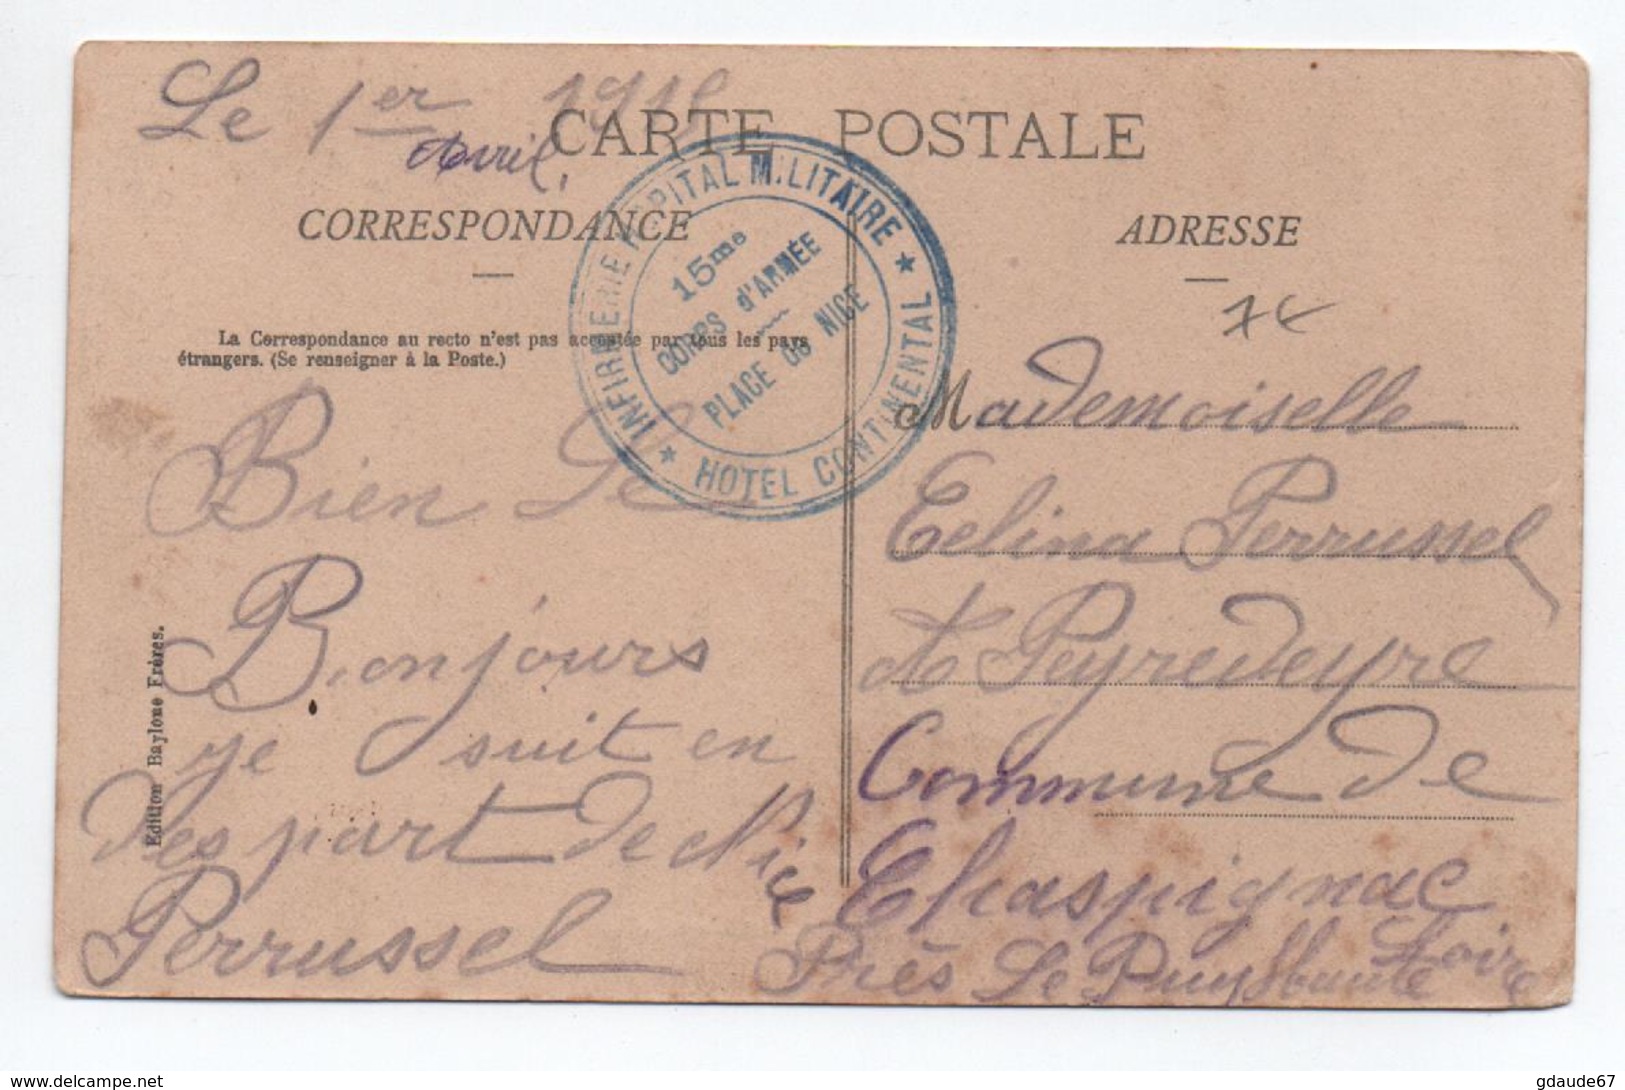 Le 1er Avril, 1915
CARTE POSTALE
CORRESPONDANCE
ADRESSE
La Correspondance au recto n'est pas acceptée par tous les pays
étrangers. (Se renseigner à la Poste.)
★ INFIRMERIE HOPITAL MILITAIRE ★
HOTEL CONTINENTAL
15me
CORPS d'ARMÉE
PLACE de NICE
Bien Le
Bonjours
je suit en
des part de Nice
Perrussel
Edition Baylone Frères.
7€
Mademoiselle
Celina Perrussel
à Peyredeyre
Commune de
Chaspignac
Près Le Puy Haute Loire
delcampe.net
gdaude67